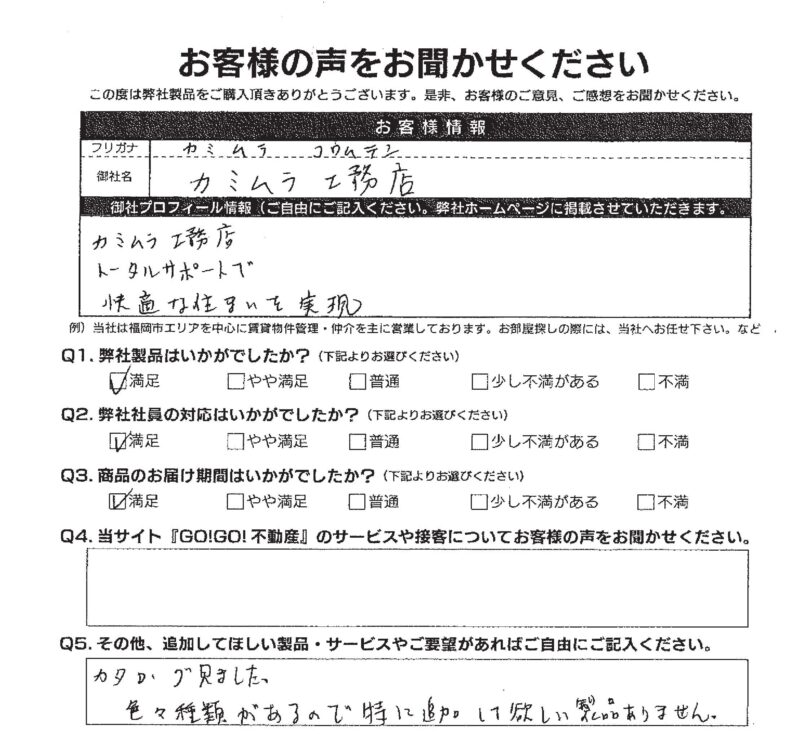 お客様の声をお聞かせください
この度は弊社製品をご購入頂きありがとうございます。是非、お客様のご意見、ご感想をお聞かせください。
お客様情報
フリガナ カミムラ コウムテン
御社名 カミムラ工務店
御社プロフィール情報（ご自由にご記入ください。弊社ホームページに掲載させていただきます。
カミムラ工務店
トータルサポートで
快適な住まいを実現
例）当社は福岡市エリアを中心に賃貸物件管理・仲介を主に営業しております。お部屋探しの際には、当社へお任せ下さい。など
Q1. 弊社製品はいかがでしたか？（下記よりお選びください）
満足 やや満足 普通 少し不満がある 不満
Q2. 弊社社員の対応はいかがでしたか？（下記よりお選びください）
満足 やや満足 普通 少し不満がある 不満
Q3. 商品のお届け期間はいかがでしたか？（下記よりお選びください）
満足 やや満足 普通 少し不満がある 不満
Q4. 当サイト『GO!GO! 不動産』のサービスや接客についてお客様の声をお聞かせください。
Q5. その他、追加してほしい製品・サービスやご要望があればご自由にご記入ください。
カタログ見ました。
色々種類があるので特に追加して欲しい製品ありません。